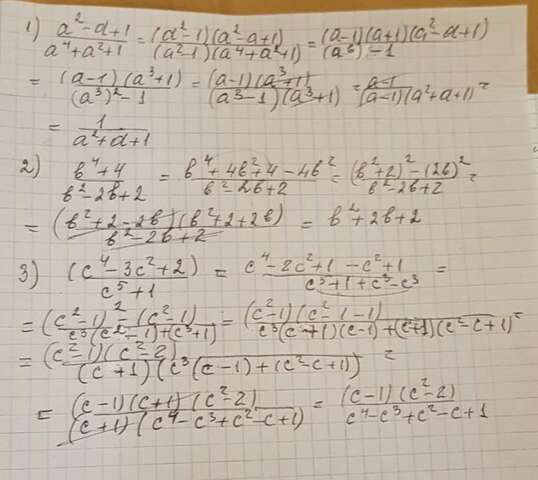 1) (a²-a+1)/(a⁴+a²+1) = ((a²-1)(a²-a+1))/((a²-1)(a⁴+a²+1)) = ((a-1)(a+1)(a²-a+1))/((a⁶)-1)
= ((a-1)(a³+1))/((a³)²-1) = ((a-1)(a³+1))/((a³-1)(a³+1)) = (a-1)/((a-1)(a²+a+1)) =
= 1/(a²+a+1)
2) (b⁴+4)/(b²-2b+2) = (b⁴+4b²+4-4b²)/(b²-2b+2) = ((b²+2)²-(2b)²)/(b²-2b+2) =
= ((b²+2-2b)(b²+2+2b))/(b²-2b+2) = b²+2b+2
3) (c⁴-3c²+2)/(c⁵+1) = (c⁴-2c²+1-c²+1)/(c⁵+1+c³-c³) =
= ((c²-1)²-(c²-1))/(c³(c²-1)+(c³+1)) = ((c²-1)(c²-1-1))/(c³(c+1)(c-1)+(c+1)(c²-c+1)) =
= ((c²-1)(c²-2))/((c+1)(c³(c-1)+(c²-c+1))) =
= ((c-1)(c+1)(c²-2))/((c+1)(c⁴-c³+c²-c+1)) = ((c-1)(c²-2))/(c⁴-c³+c²-c+1)